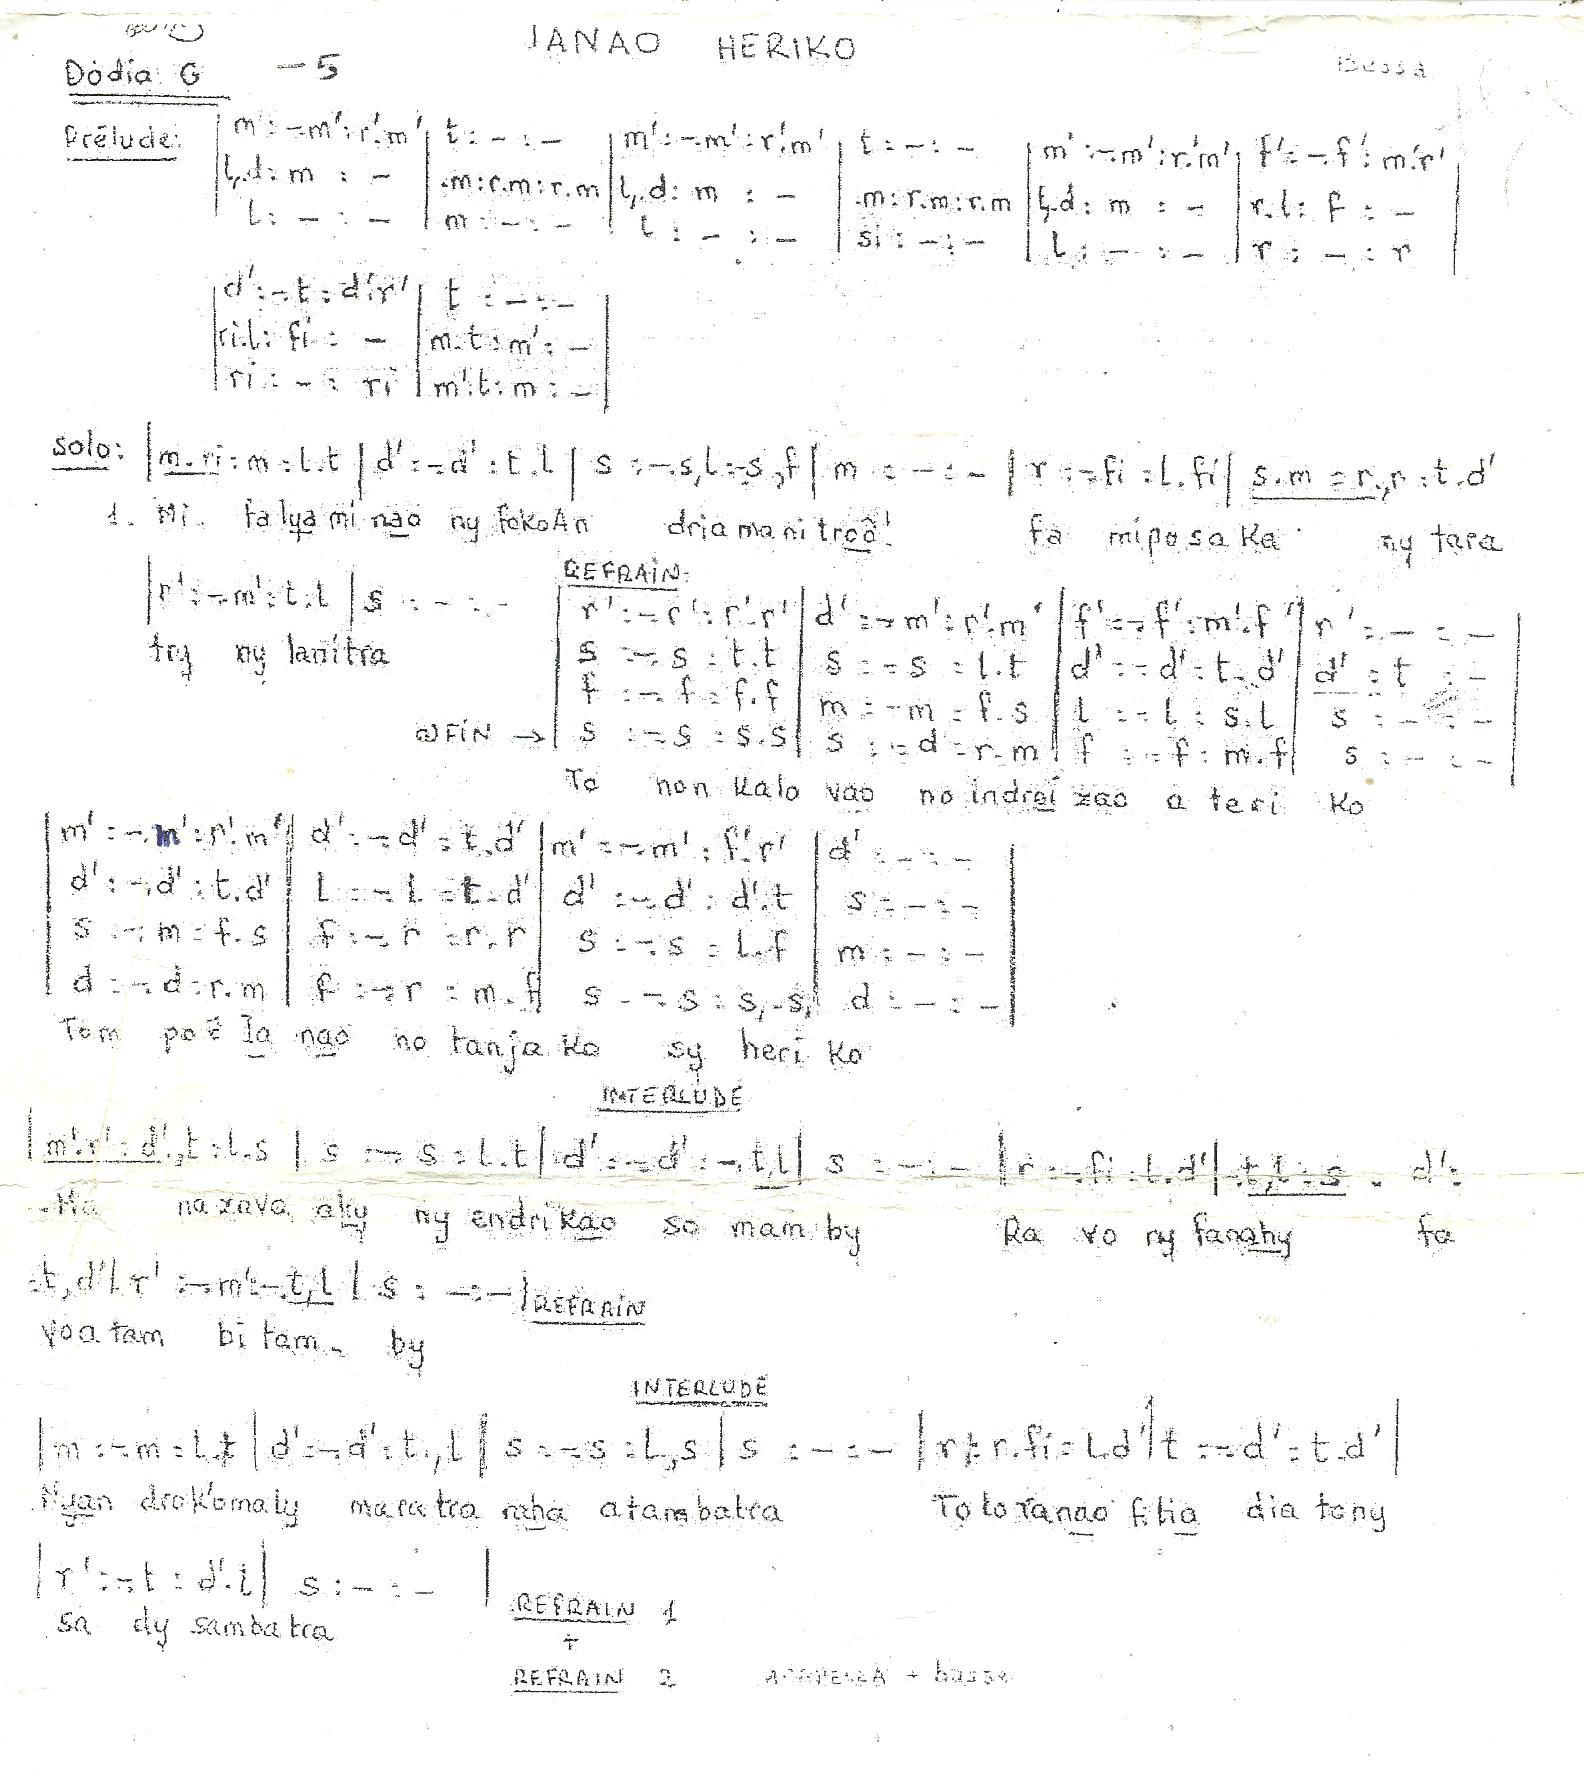 JANAO HERIKO
Dòdia G -5
Bassa
Prélude: | m':-.m':r'.m' | t:-:- | m':-.m':r'.m' | t:-:- | m':-.m':r'.m' | f':-.f':m'.r' |
| l,.d:m:- | .m:r.m:r.m | l,.d:m:- | .m:r.m:r.m | l,.d:m:- | r.l:f:- |
| l:-:- | m:-:- | l:-:- | si:-:- | l:-:- | r:-:r |
| d':-.t:d'.r' | t:-:- |
| ri.l:fi:- | m.t:m':- |
| ri:-:ri | m'.t:m:- |
Solo: | m.ri:m:l.t | d':-.d':t.l | s:-.s,l:-s,f | m:-:- | r:-.fi:l.fi | s.m:r.,r:t.d'
1. Mi. falya mi nao ny fokoAn driamanitroô! fa miposaka ny tara
| r':-.m':t.l | s:-:-
REFRAIN:
| r':-.r':r'.r' | d':-.m':r'.m' | f':-.f':m'.f' | r':-:- |
try ny lanitra
| s:-.s:t.t | s:-.s:l.t | d':-.d':t.d' | d':t:- |
| f:-.f:f.f | m:-.m:f.s | l:-.l:s.l | s:-:- |
FIN → | s:-.s:s.s | s:-.d:r.m | f:-.f:m.f | s:-:- |
To non kalo vao no indroi zao a teri ko
| m':-.m':r'.m' | d':-.d':t.d' | m':-.m':f'.r' | d':-:- |
| d':-.d':t.d' | l:-.l:t.d' | d':-.d':d'.t | s:-:- |
| s:-.m:f.s | f:-.r:r.r | s:-.s:l.f | m:-:- |
| d:-.d:r.m | f:-.r:m.f | s:-.s:s,.s, | d:-:- |
Tom poê Ia nao no tanja ko sy heri ko
INTERLUDE
| m'.r':d'.,t:l.s | s:-.s:l.t | d':-.d':-.t,l | s:-:- | r:-.fi:l.d' | .t,l:s. d':
Ma nazava aky ny endri kao so mam by Ra vo ny fanahy fa
:t,d' | r':-.m':-.t,l | s:-:- | REFRAIN
voa tam bi tam- by
INTERLUDE
| m:-.m:l.t | d':-.d':t.,l | s:-.s:l,s | s:-:- | r:r.fi:l.d' | t:-.d':t.d' |
Nyan drokomaly maratra raha atambatra Totoranao fitia dia tony
| r':-.t:d'.l | s:-:- |
sa dy sambatra
REFRAIN 1
+
REFRAIN 2 ACAPELLA + basse